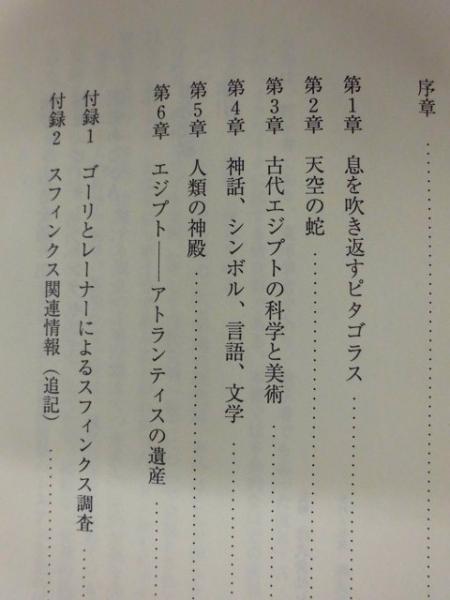 序章 ..........
第1章 息を吹き返すピタゴラス ..........
第2章 天空の蛇 ..........
第3章 古代エジプトの科学と美術 ..........
第4章 神話、シンボル、言語、文学 ..........
第5章 人類の神殿 ..........
第6章 エジプト――アトランティスの遺産 ..........
付録1 ゴーリとレーナーによるスフィンクス調査 ..........
付録2 スフィンクス関連情報(追記) ..........